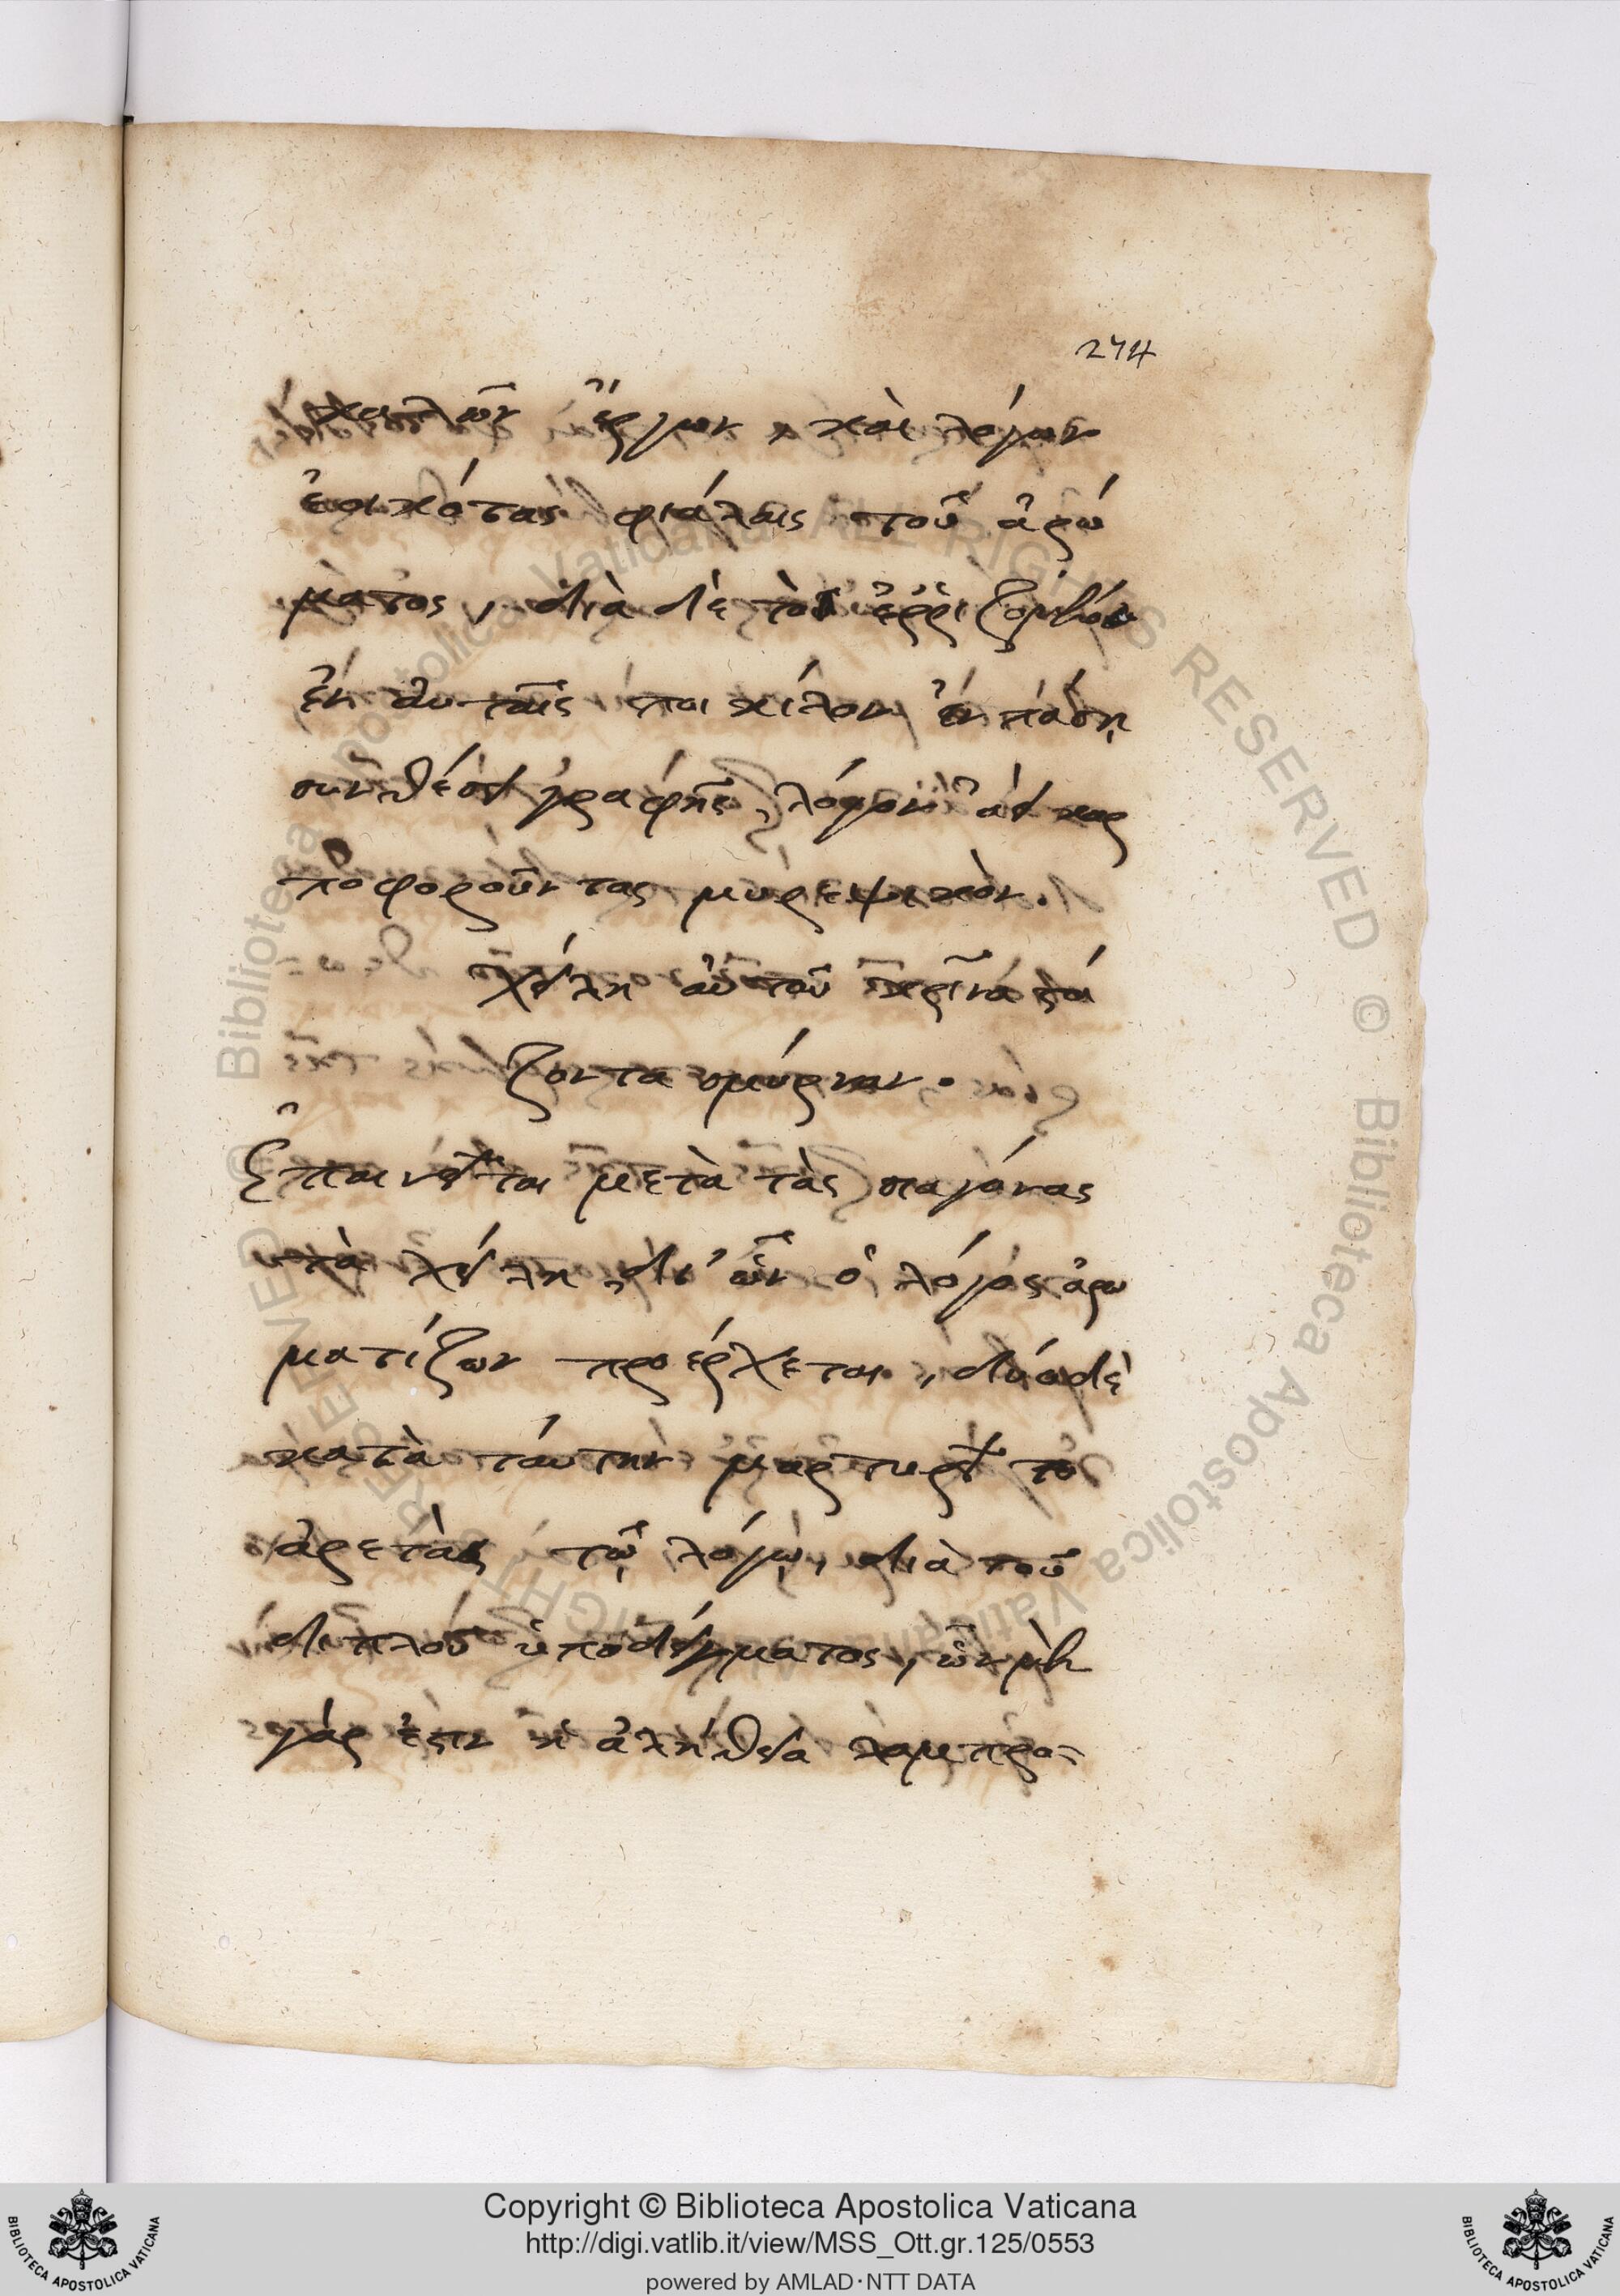 274
καλῶν ἔργων, καὶ λόγων
ἐοικότας φιάλαις τοῦ ἀρώ
ματος, διὰ δὲ τὸν ἐῤῥιζομένον
ἐν αὐταῖς ποικίλον ἐν πάσῃ
συνθέσει γραφῆς, λόγον ἀεὶ καρ
ποφοροῦντας μυρεψικὸν.
χείλη αὐτοῦ κρῖνα στά
ζοντα σμύρναν.
Ἐπαινεῖται μετὰ τὰς σιαγόνας
τὰ χείλη, δι' ὧν ὁ λόγος ἀρω
ματίζων προέρχεται, δύο δὲ
κατὰ ταυτὴν μαρτυρεῖ τὸ
ἀρετὰς τῷ λόγῳ, διὰ τοῦ
διπλοῦ ὑποδείγματος, ὧν μὲν
γάρ ἐστιν ἡ ἀλήθεια λαμπρο-
Copyright © Biblioteca Apostolica Vaticana
http://digi.vatlib.it/view/MSS_Ott.gr.125/0553
powered by AMLAD·NTT DATA
BIBLIOTECA APOSTOLICA VATICANA
BIBLIOTECA APOSTOLICA VATICANA
© Biblioteca Apostolica Vaticana ALL RIGHTS RESERVED © Biblioteca Apostolica Vaticana ALL RIGHTS RESERVED